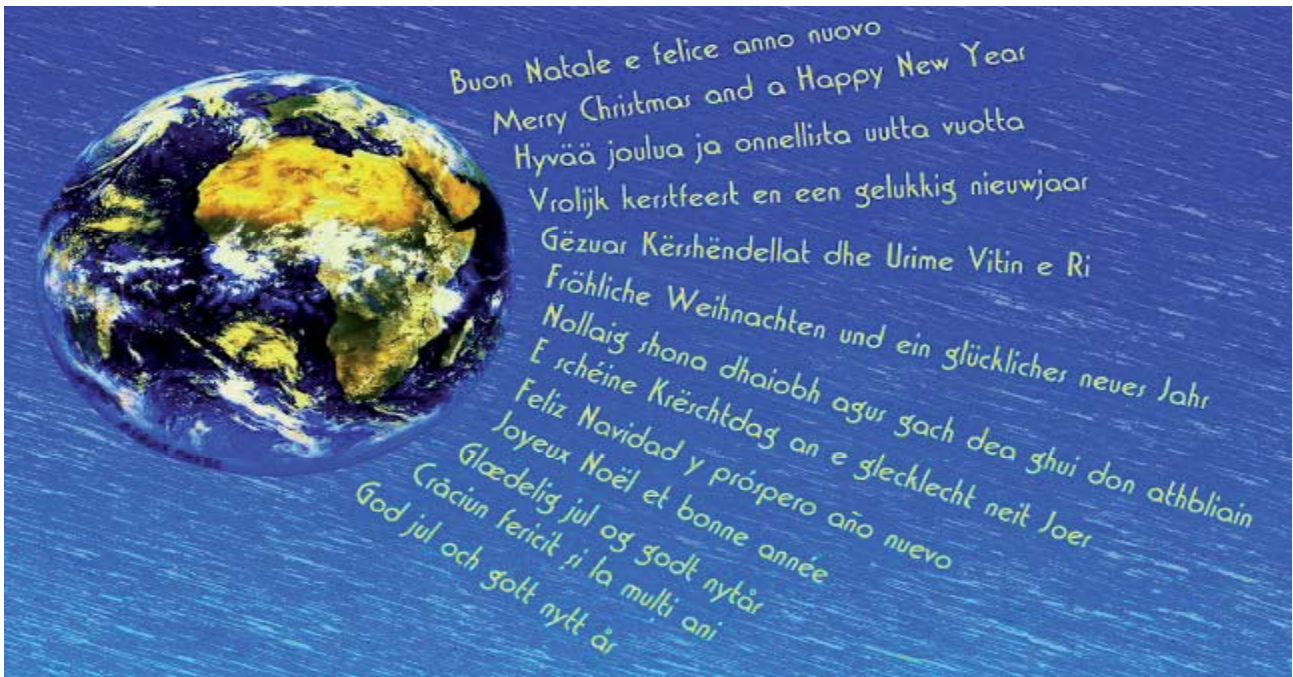 Buon Natale e felice anno nuovo
Merry Christmas and a Happy New Year
Hyvää joulua ja onnellista uutta vuotta
Vrolijk kerstfeest en een gelukkig nieuwjaar
Gëzuar Kërshëndellat dhe Urime Vitin e Ri
Fröhliche Weihnachten und ein glückliches neues Jahr
Nollaig shona dhaoibh agus gach dea ghui don athbliain
E schéine Krëschtdag an e glecklecht neit Joer
Feliz Navidad y próspero año nuevo
Joyeux Noël et bonne année
Glædelig jul og godt nytår
Crăciun fericit și la mulți ani
God jul och gott nytt år